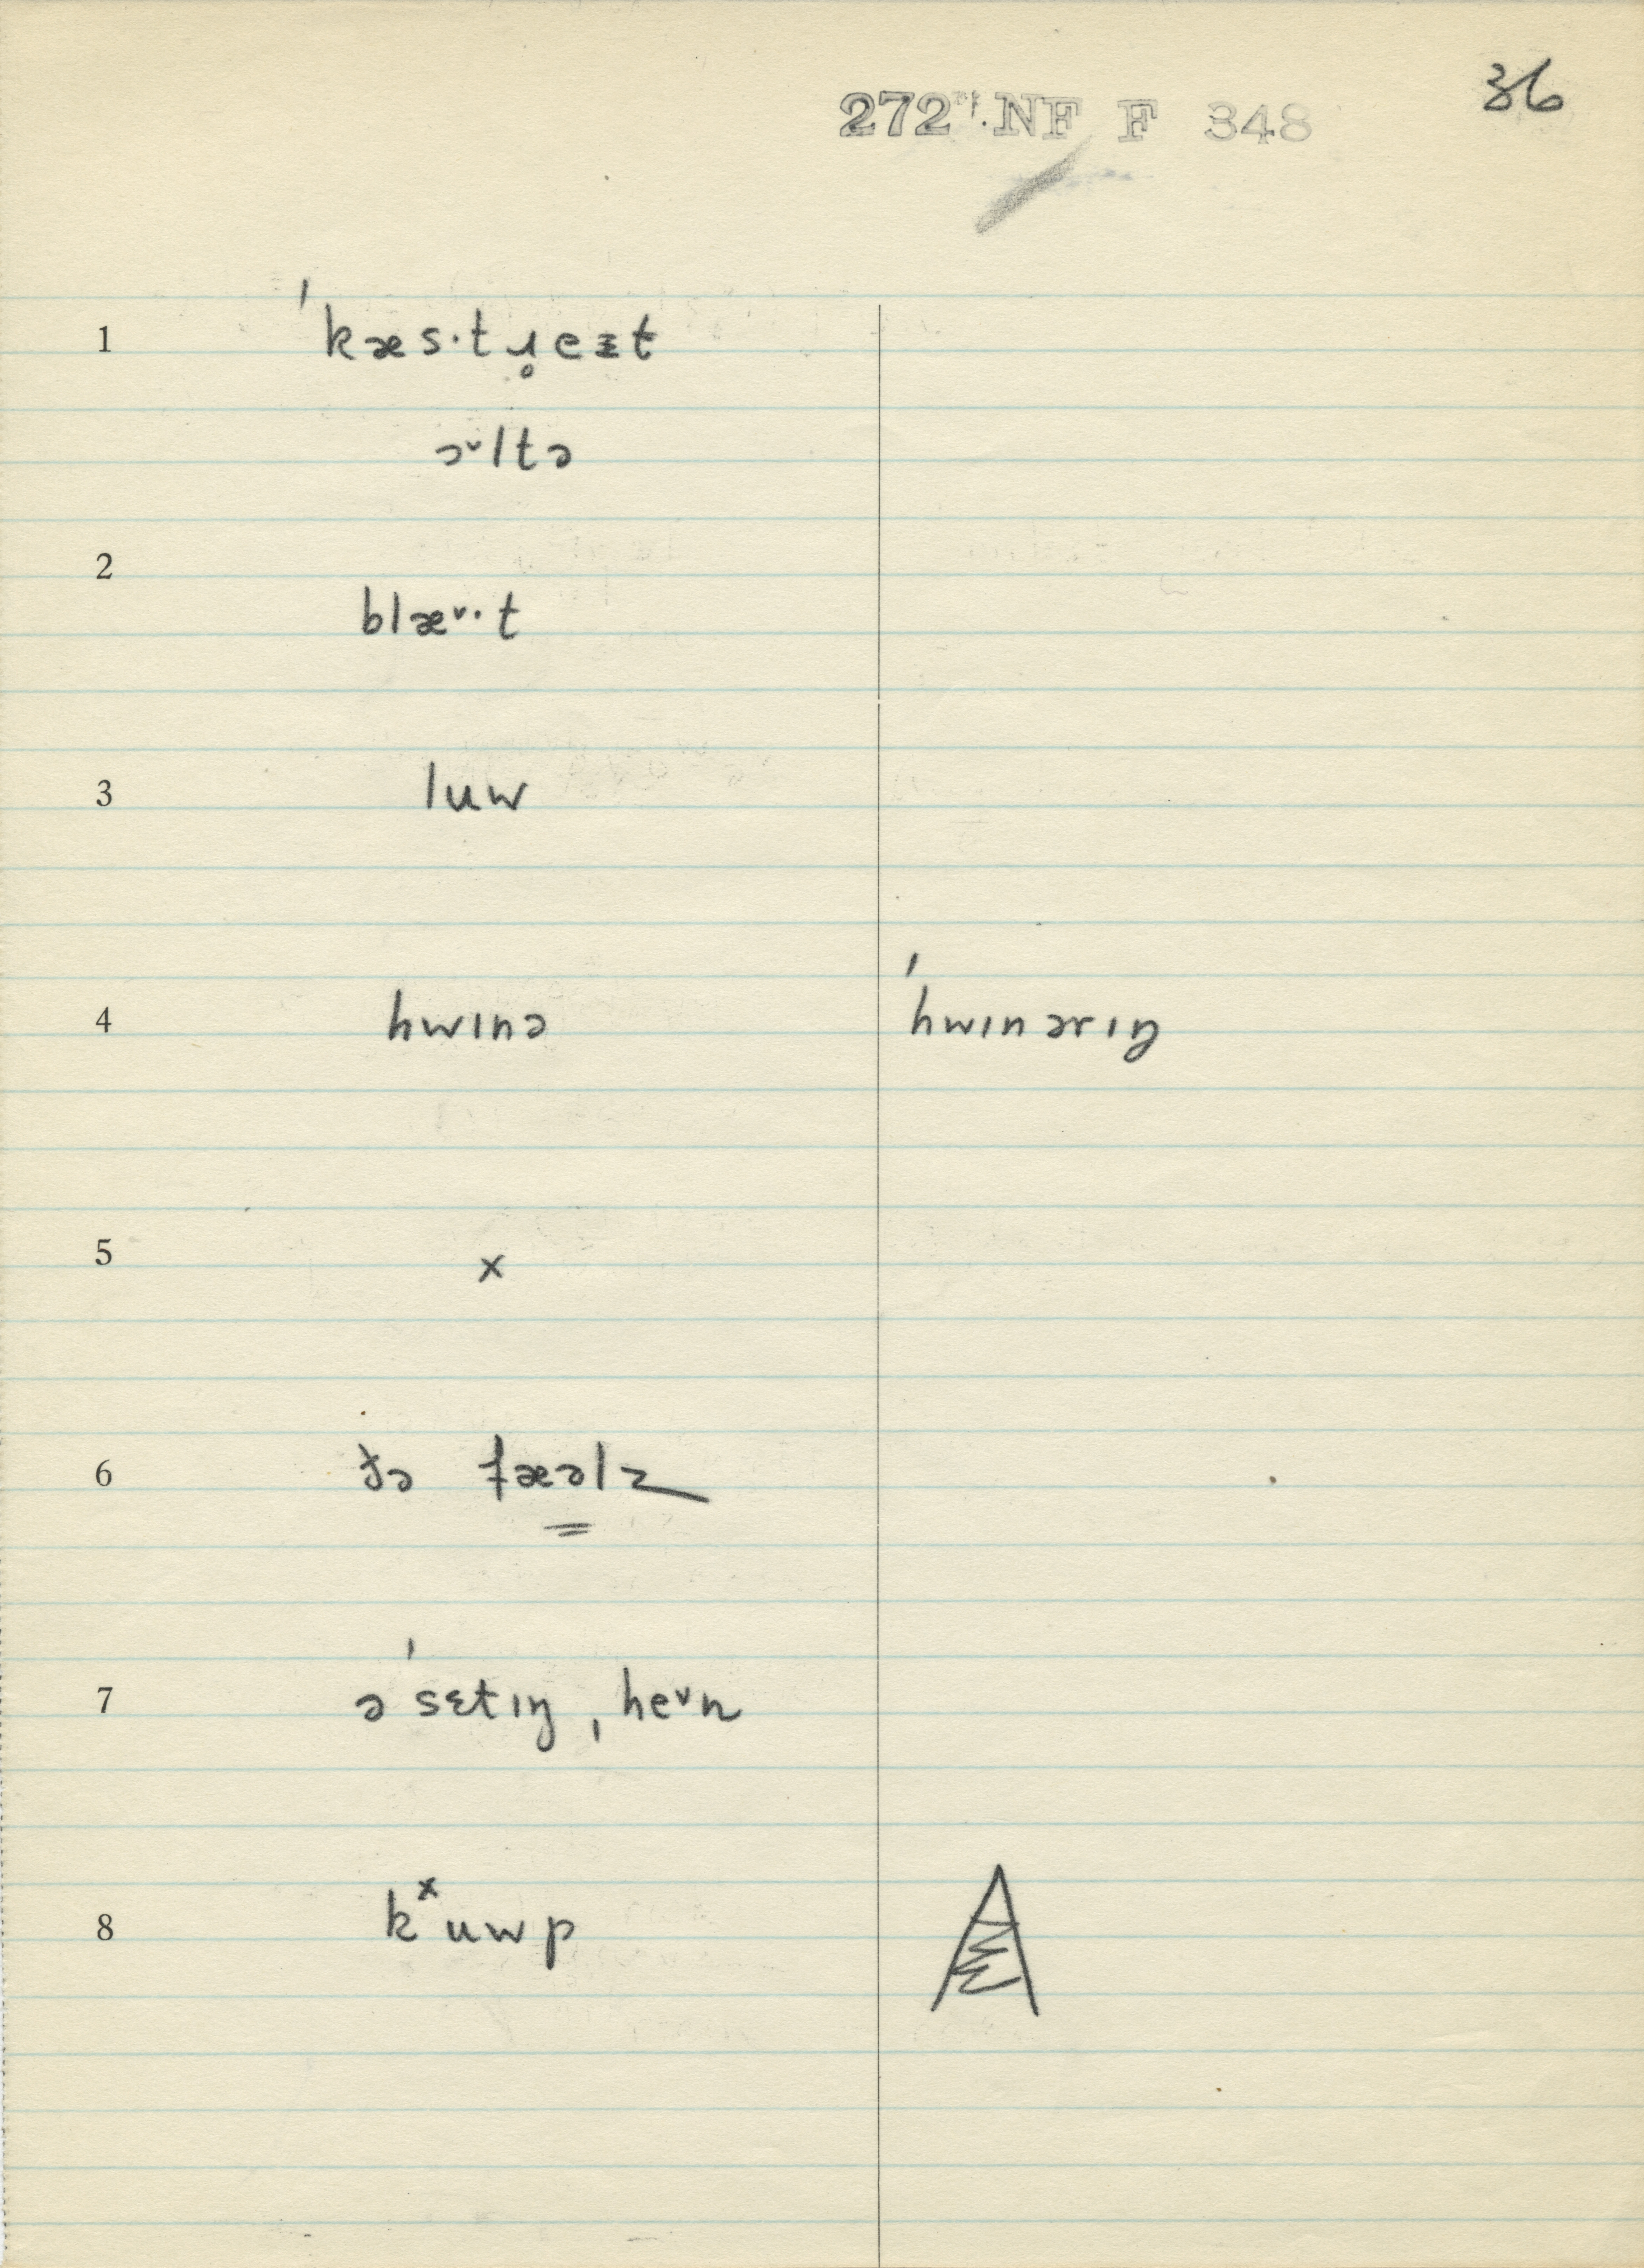 272 NF F 348
36
1 ˈkæs·tɹ̥eɪt
ɔᵛltə
2 blæᵛ·t
3 luw
4 hwɪnə ˈhwɪnərɪŋ
5 x
6 ðə fæəlz
7 ə ˈsɛtɪŋ ˌheᵛn
8 kˣuwp